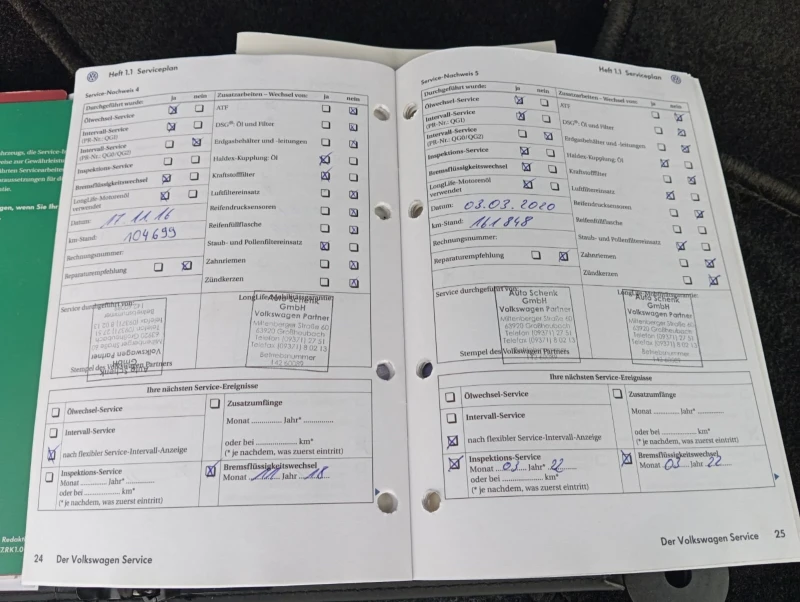 Heft 1.1 Serviceplan
Service-Nachweis 4
Durchgeführt wurde: ja nein
Ölwechsel-Service
Intervall-Service
(PR-Nr.: QG1)
Intervall-Service
(PR-Nr.: QG0/QG2)
Inspektions-Service
Bremsflüssigkeitswechsel
LongLife-Motorenöl
verwendet
Datum: 17.11.16
km-Stand: 104699
Rechnungsnummer:
Reparaturempfehlung
Zusatzarbeiten – Wechsel von: ja nein
ATF
DSG®: Öl und Filter
Erdgasbehälter und -leitungen
Haldex-Kupplung: Öl
Kraftstofffilter
Luftfiltereinsatz
Reifendruckensoren
Reifenfüllflasche
Staub- und Pollenfiltereinsatz
Zahnriemen
Zündkerzen
Service durchgeführt von
LongLife-Mobilitätsgarantie
Auto Schenk
GmbH
Volkswagen Partner
Miltenberger Straße 60
63920 Großheubach
Telefon (09371) 27 51
Telefax (09371) 8 02 13
Betriebsnummer
142 60089
Auto Schenk
GmbH
Volkswagen Partner
Stempel des Volkswagen Partners
Ihre nächsten Service-Ereignisse
Ölwechsel-Service
Intervall-Service
nach flexibler Service-Intervall-Anzeige
Inspektions-Service
Monat ............ Jahr* ............
oder bei ............ km*
(* je nachdem, was zuerst eintritt)
Zusatzumfänge
Monat ............ Jahr* ............
oder bei ............ km*
(* je nachdem, was zuerst eintritt)
Bremsflüssigkeitswechsel
Monat 11 Jahr 18
24 Der Volkswagen Service
Heft 1.1 Serviceplan
Service-Nachweis 5
Durchgeführt wurde: ja nein
Ölwechsel-Service
Intervall-Service
(PR-Nr.: QG1)
Intervall-Service
(PR-Nr.: QG0/QG2)
Inspektions-Service
Bremsflüssigkeitswechsel
LongLife-Motorenöl
verwendet
Datum: 03.03.2020
km-Stand: 161848
Rechnungsnummer:
Reparaturempfehlung
Zusatzarbeiten – Wechsel von: ja nein
ATF
DSG®: Öl und Filter
Erdgasbehälter und -leitungen
Haldex-Kupplung: Öl
Kraftstofffilter
Luftfiltereinsatz
Reifendrucksensoren
Reifenfüllflasche
Staub- und Pollenfiltereinsatz
Zahnriemen
Zündkerzen
Service durchgeführt von
Auto Schenk
GmbH
Volkswagen Partner
Miltenberger Straße 60
63920 Großheubach
Telefon (09371) 27 51
Telefax (09371) 8 02 13
Betriebsnummer
142 60089
Auto Schenk
GmbH
Volkswagen Partner
Miltenberger Straße 60
63920 Großheubach
Telefon (09371) 27 51
Telefax (09371) 8 02 13
Betriebsnummer
142 60089
Stempel des Volkswagen Partners
Ihre nächsten Service-Ereignisse
Ölwechsel-Service
Intervall-Service
nach flexibler Service-Intervall-Anzeige
Inspektions-Service
Monat 03 Jahr* 22
oder bei ............ km*
(* je nachdem, was zuerst eintritt)
Zusatzumfänge
Monat ............ Jahr* ............
oder bei ............ km*
(* je nachdem, was zuerst eintritt)
Bremsflüssigkeitswechsel
Monat 03 Jahr 22
Der Volkswagen Service 25